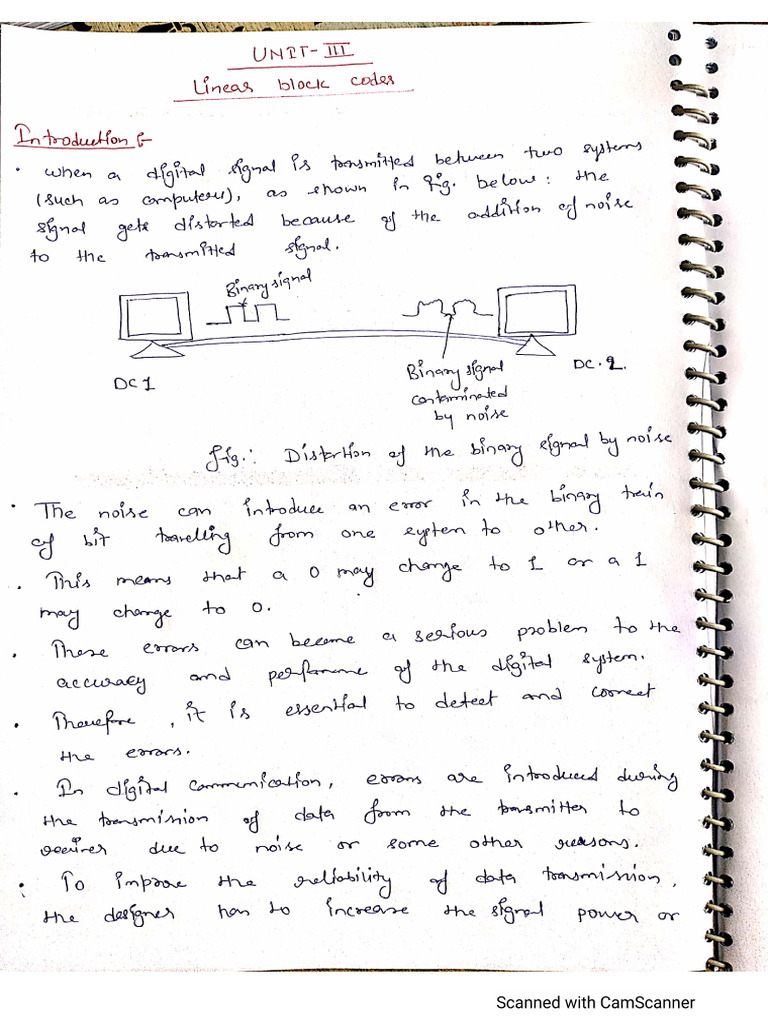 UNIT-III
Linear block codes
Introduction :-
• When a digital signal is transmitted between two systems
(such as computers), as shown in Fig. below: the
signal gets distorted because of the addition of noise
to the transmitted signal.
Binary signal
DC 1
Binary signal
contaminated
by noise
DC. 2.
Fig.: Distortion of the binary signal by noise
• The noise can introduce an error in the binary train
of bit travelling from one system to other.
• This means that a 0 may change to 1 or a 1
may change to 0.
• These errors can become a serious problem to the
accuracy and performance of the digital system.
• Therefore, it is essential to detect and correct
the errors.
• In digital communication, errors are introduced during
the transmission of data from the transmitter to
reciver due to noise or some other reasons.
• To improve the reliability of data transmission,
the designer has to increase the signal power or
Scanned with CamScanner